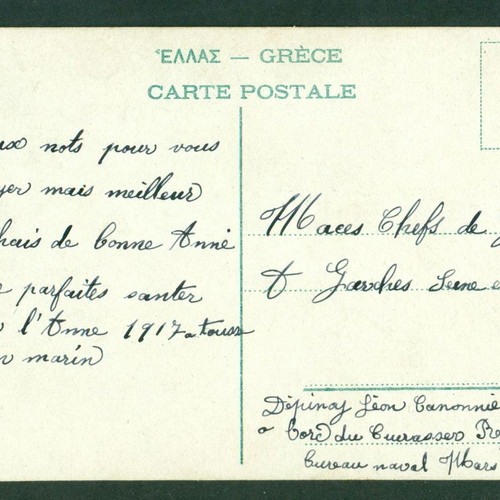 ἙΛΛΑΣ — GRÈCE
CARTE POSTALE
ux nots pour vous
yer mais meilleur
hais de bonne Anné
e parfaites santer
l'Anne 1917 a tous
marin
Maces Chefs de
à Garches Seine e
Dépinay Léon Canonnie
a bord du Cuirasser Re
bureau naval Mars